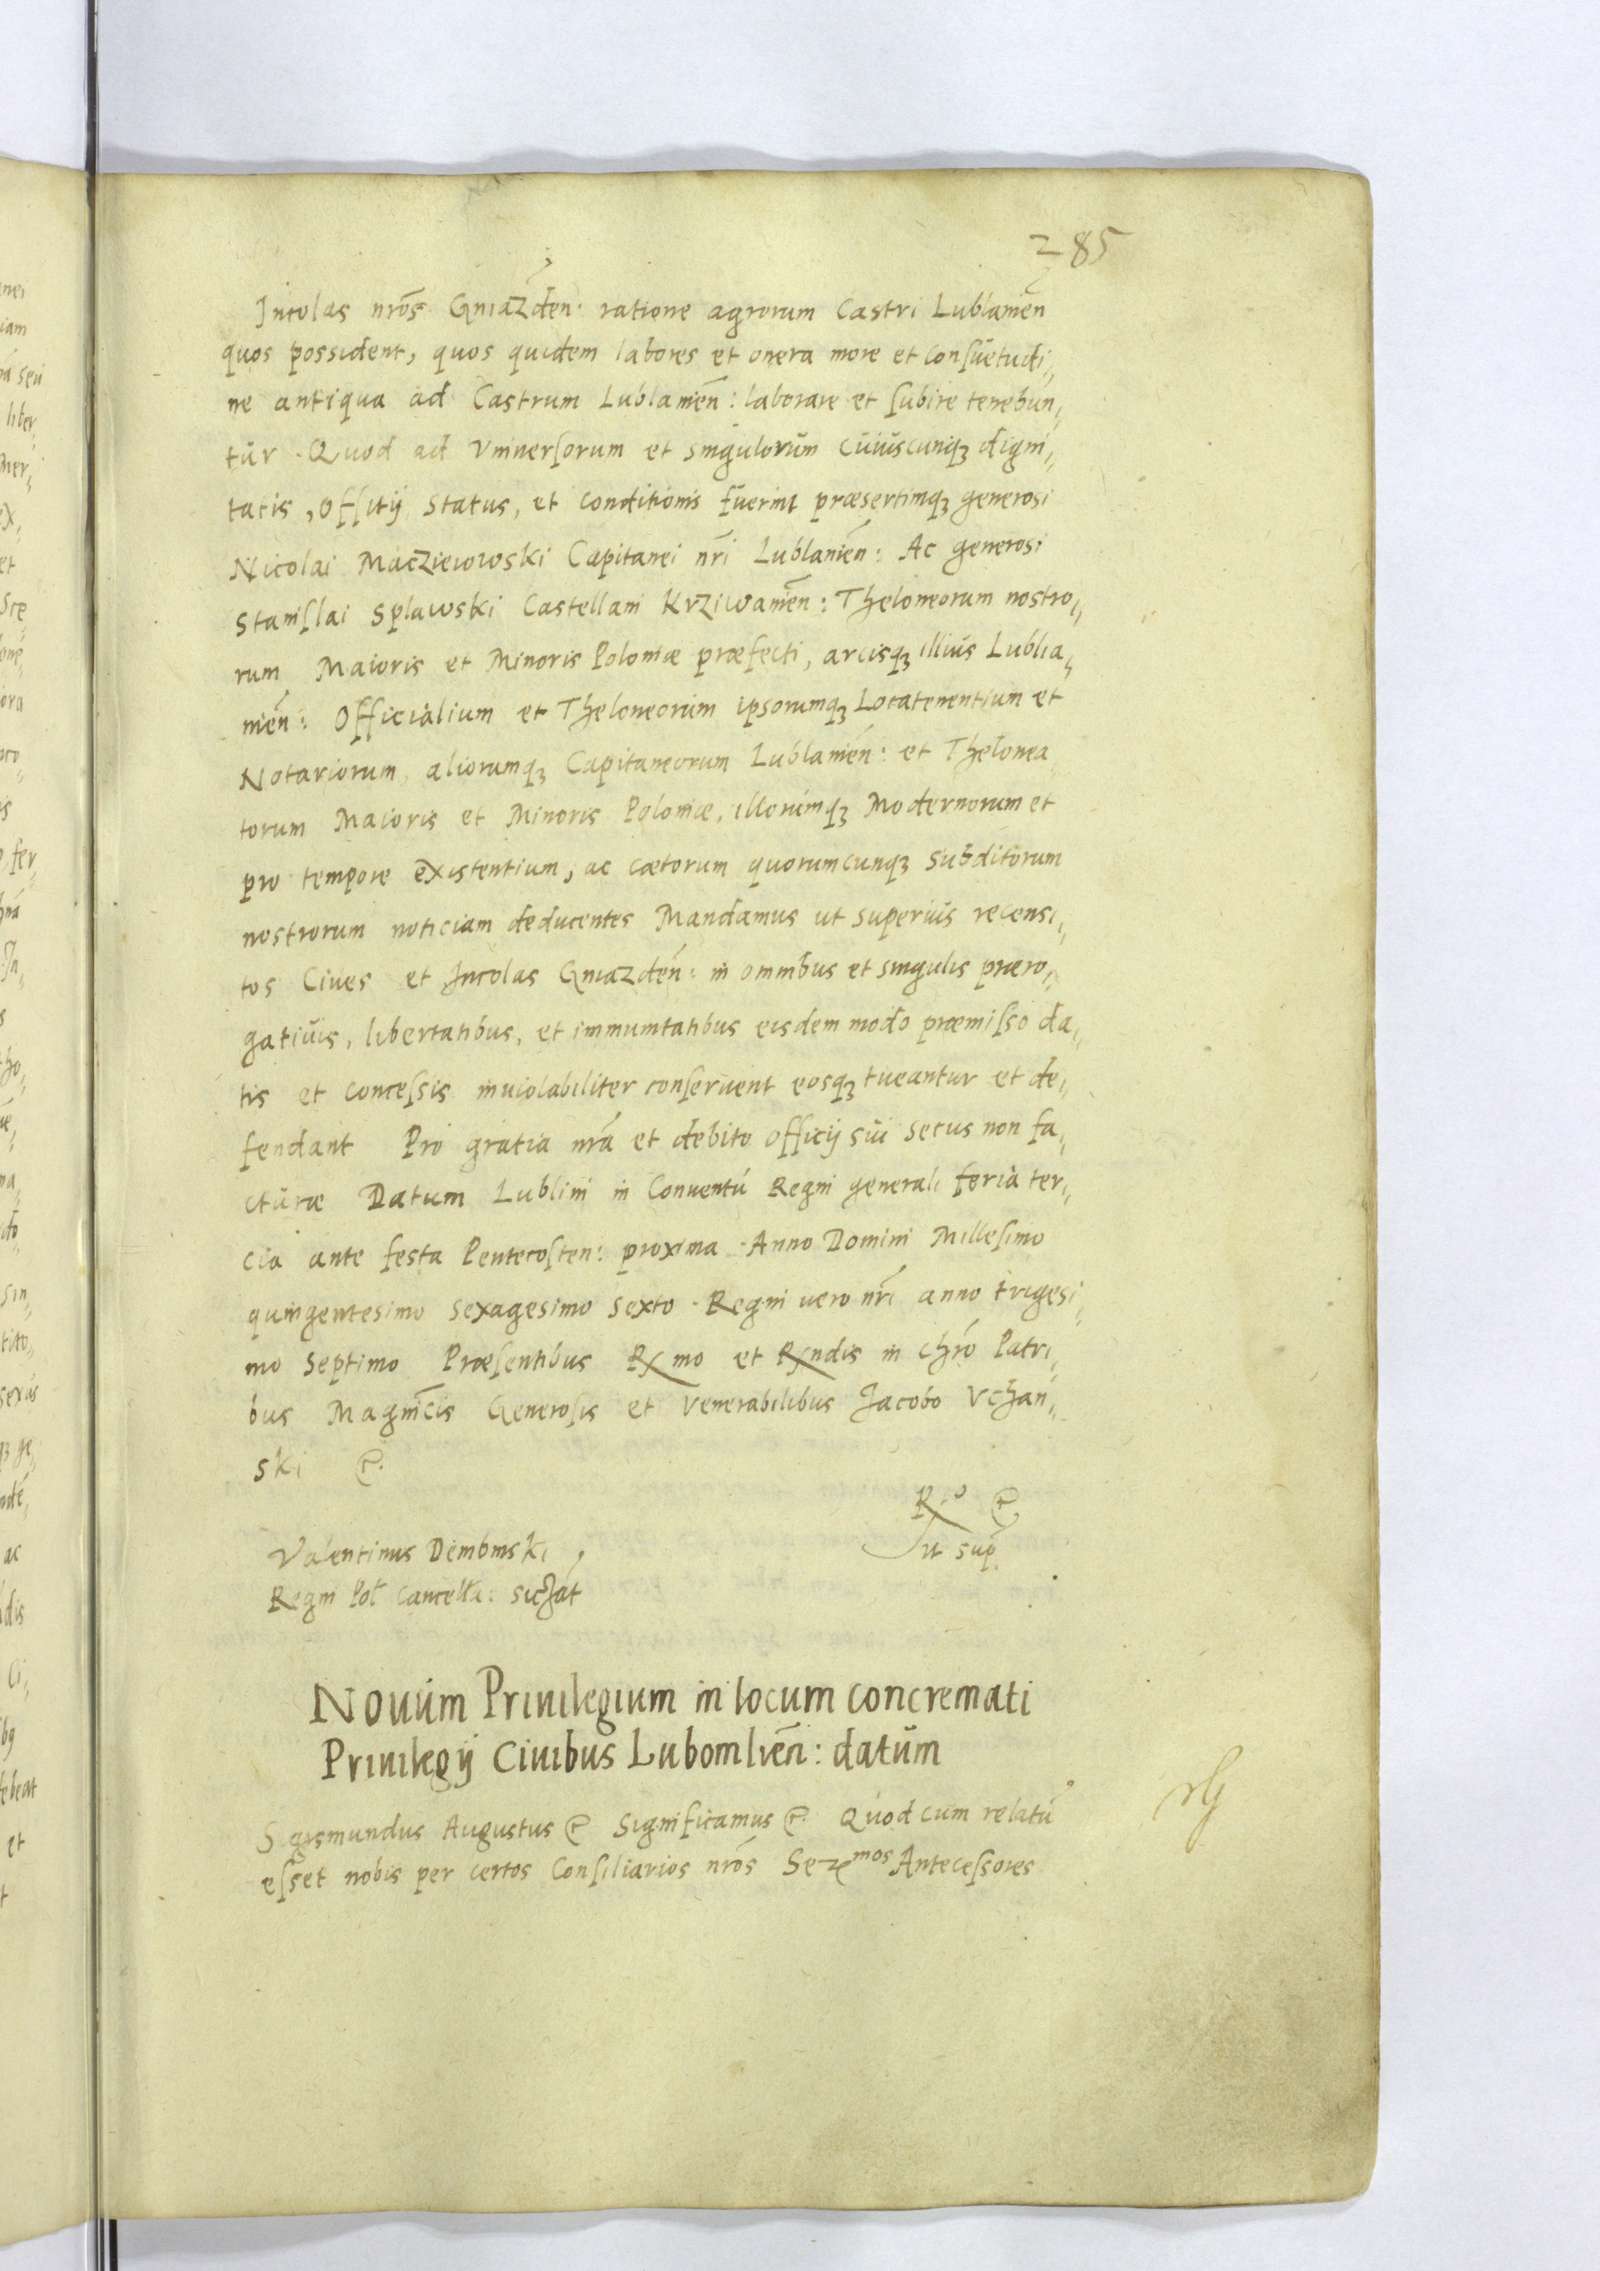 285
Incolas nrōs Gniazden: ratione agrorum Castri Lublaniēn
quos possident, quos quidem labores et onera more et consuetudi,,
ne antiqua ad Castrum Lublaniēn: laborare et subire tenebun,,
tur. Quod ad Vniuersorum et singulorum cuiuscunqꝫ digni,,
tatis, Offitij status, et conditionis fuerint præsertimqꝫ generosi
Nicolai Macziewowski Capitanei nrī Lublaniēn: Ac generosi
Stanislai Splawski Castellani Krziwaniēn: Theloneorum nostro,,
rum Maioris et Minoris Poloniæ præfecti, arcisqꝫ illius Lublia,,
niēn: Officialium et Theloneorum ipsorumqꝫ Locatenentium et
Notariorum, aliorumqꝫ Capitaneorum Lublaniēn: et Thelonea
torum Maioris et Minoris Poloniæ, illorumqꝫ Modernorum et
pro tempore existentium, ac cætorum quorumcunqꝫ subditorum
nostrorum noticiam deducentes Mandamus ut superius recensi,,
tos Ciues et Incolas Gniazdēn: in omnibus et singulis præro,,
gatiuis, libertatibus, et immunitatibus eisdem modo præmisso da,,
tis et concessis inuiolabiliter conseruent eosqꝫ tueantur et de,,
fendant Pro gratia nrā et debito officij sui secus non fa,,
cturæ Datum Lublini in Conuentu Regni generali feria ter,,
cia ante festa Pentecosten: proxima. Anno Domini Millesimo
quingentesimo sexagesimo sexto. Regni uero nrī anno trigesi,,
mo septimo Præsentibus Rmo et Rndis in chrō Patri,,
bus Magnīcis Generosis et Venerabilibus Jacobo Vchan,,
ski &.
R.o &
ut sup
Valentinus Dembinski
Regni Pol Cancella:
Nouum Priuilegium in locum concremati
Priuilegij Ciuibus Lubomliēn: datum
Sigismundus Augustus & Significamus &. Quod cum relatū
esset nobis per certos Consiliarios nrōs Serᵐᵒˢ Antecessores